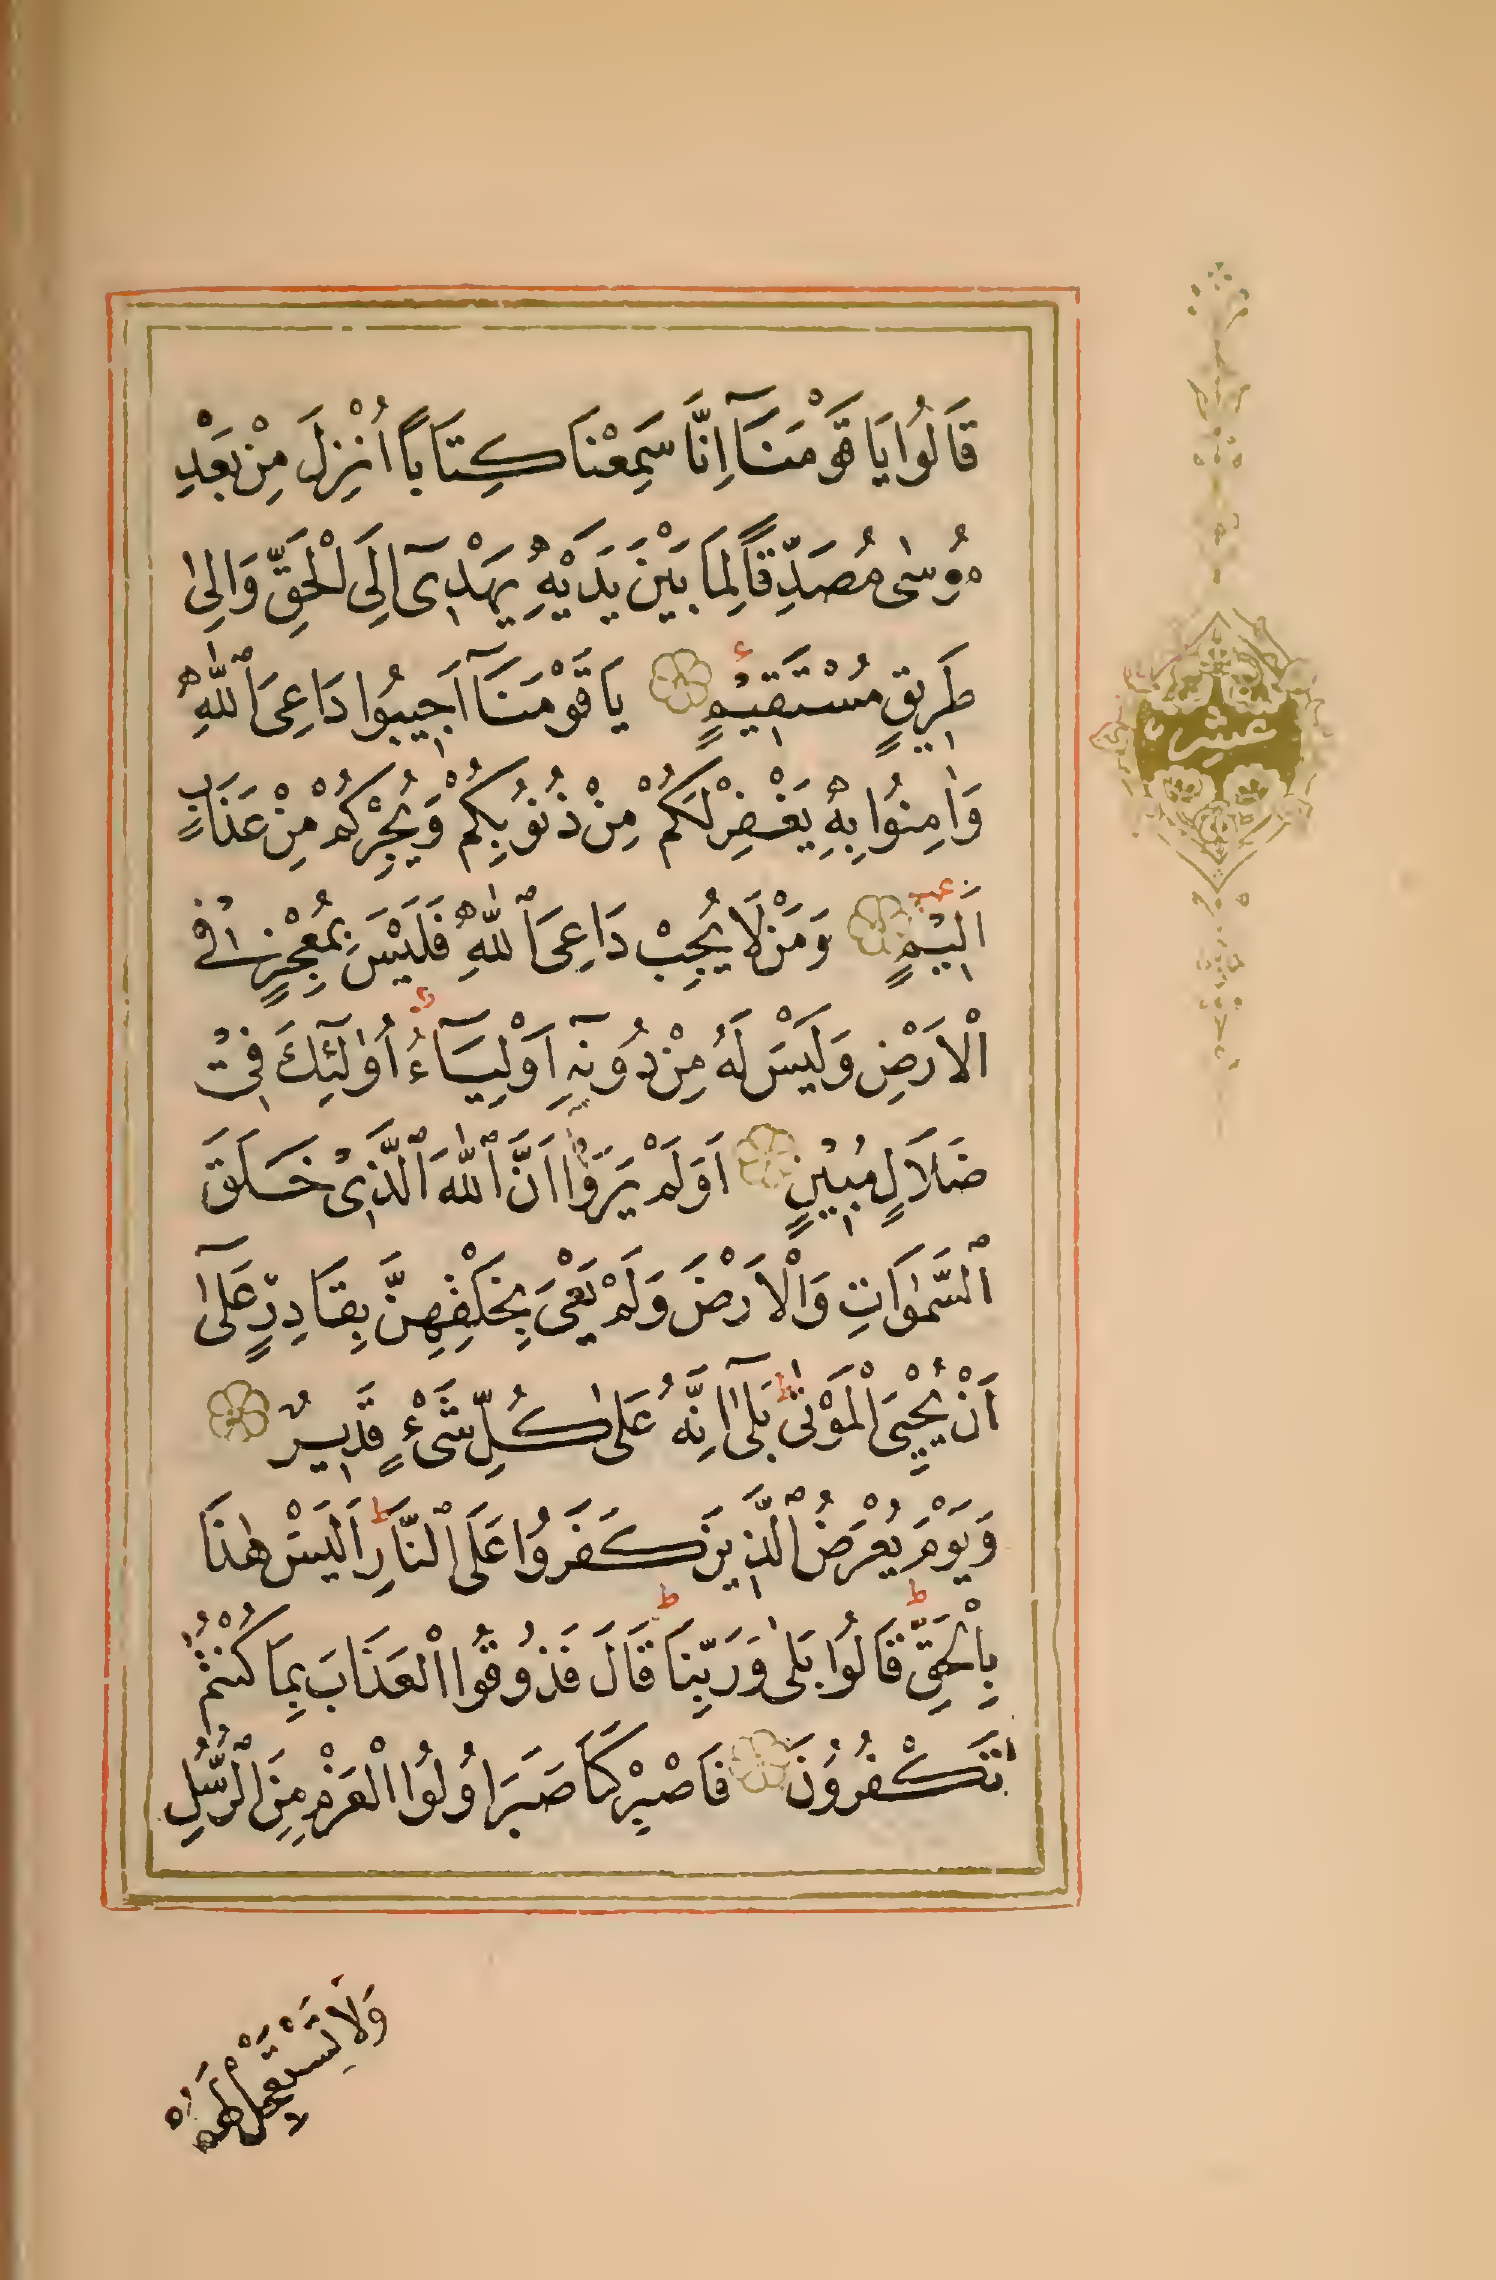 قَالُوا يَا قَوْمَنَآ اِنَّا سَمِعْنَا كِتَابًا اُنْزِلَ مِنْ بَعْدِ
مُوسٰى مُصَدِّقًا لِمَا بَيْنَ يَدَيْهِ يَهْدٖىٓ اِلَى الْحَقِّ وَاِلٰى
طَرٖيقٍ مُسْتَقٖيمٍ يَا قَوْمَنَآ اَجٖيبُوا دَاعِىَ اللّٰهِ
وَاٰمِنُوا بِهٖ يَغْفِرْ لَكُمْ مِنْ ذُنُوبِكُمْ وَيُجِرْكُمْ مِنْ عَذَابٍ
اَلٖيمٍ وَمَنْ لَا يُجِبْ دَاعِىَ اللّٰهِ فَلَيْسَ بِمُعْجِزٍ فِى
الْاَرْضِ وَلَيْسَ لَهُ مِنْ دُونِهٖٓ اَوْلِيَآءُ اُولٰٓئِكَ فٖى
ضَلَالٍ مُبٖينٍ اَوَلَمْ يَرَوْا اَنَّ اللّٰهَ الَّذٖى خَلَقَ
السَّمٰوَاتِ وَالْاَرْضَ وَلَمْ يَعْىَ بِخَلْقِهِنَّ بِقَادِرٍ عَلٰٓى
اَنْ يُحْيِىَ الْمَوْتٰى ط بَلٰٓى اِنَّهُ عَلٰى كُلِّ شَىْءٍ قَدٖيرٌ
وَيَوْمَ يُعْرَضُ الَّذٖينَ كَفَرُوا عَلَى النَّارِ ط اَلَيْسَ هٰذَا
بِالْحَقِّ ط قَالُوا بَلٰى وَرَبِّنَا ط قَالَ فَذُوقُوا الْعَذَابَ بِمَا كُنْتُمْ
تَكْفُرُونَ فَاصْبِرْ كَمَا صَبَرَ اُولُوا الْعَزْمِ مِنَ الرُّسُلِ
وَلَا تَسْتَعْجِلْ لَهُمْ
عشر